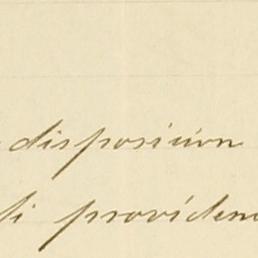 disposición
providen